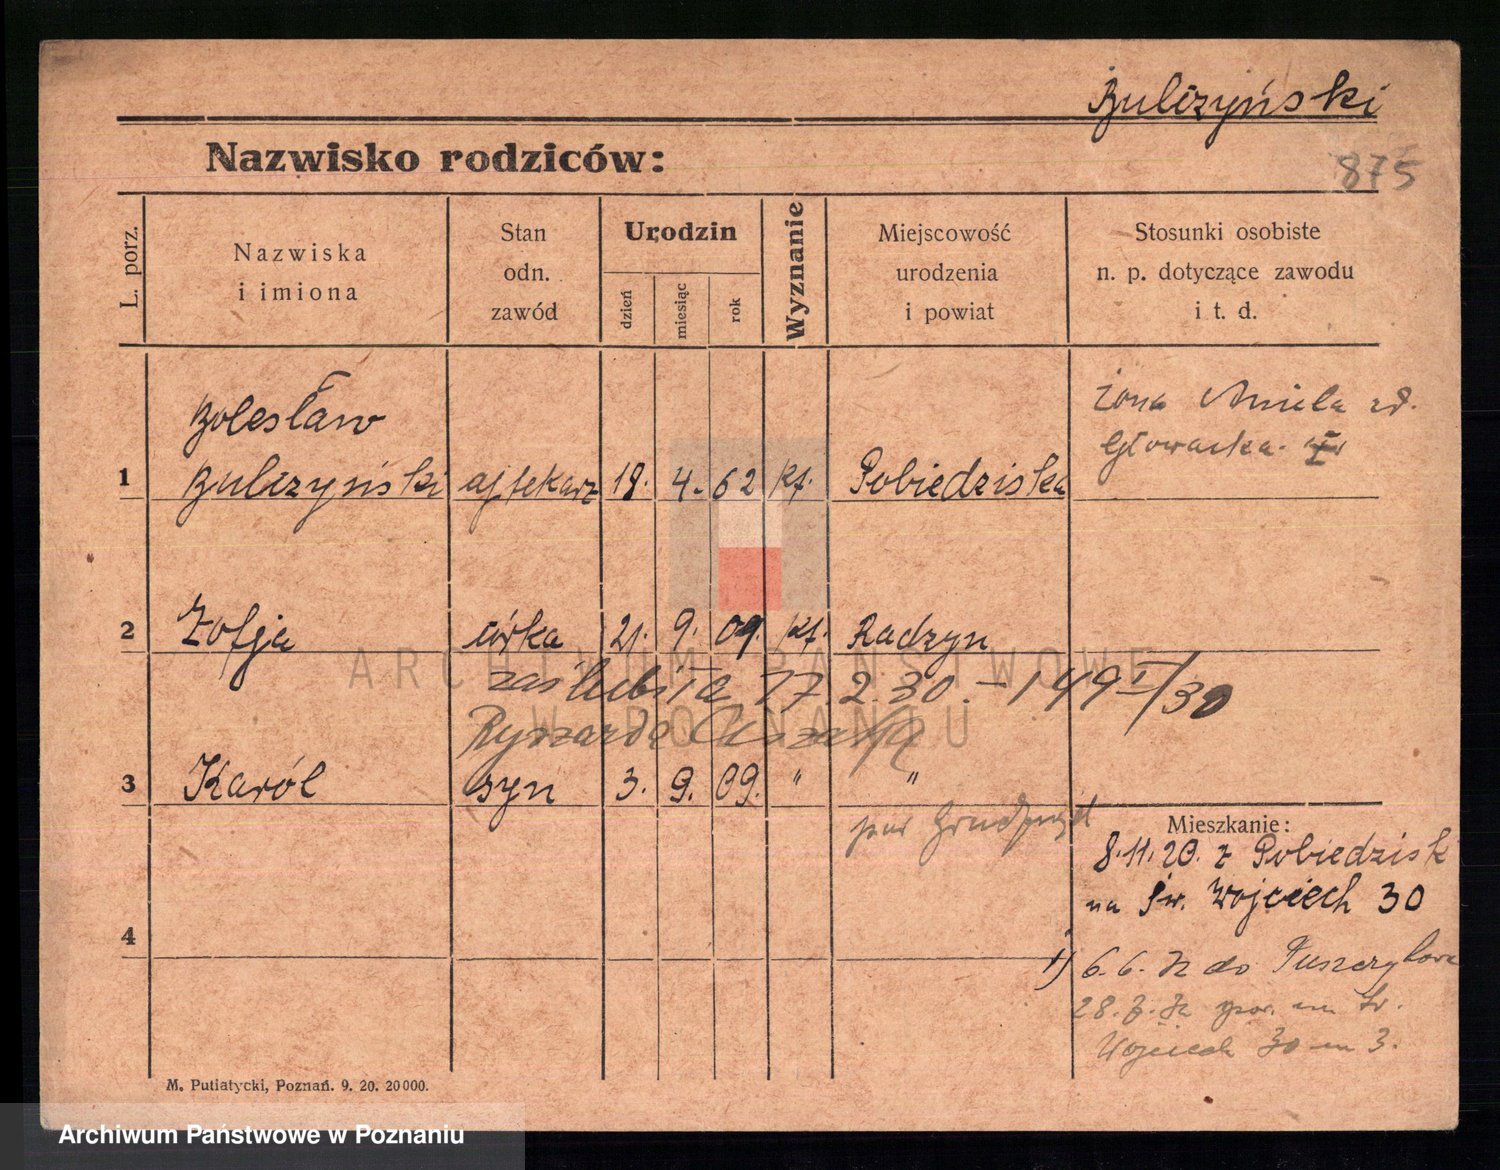 Bulczyński
Nazwisko rodziców:
875
L. porz.
Nazwiska
i imiona
Stan
odn.
zawód
Urodzin
dzień
miesiąc
rok
Wyznanie
Miejscowość
urodzenia
i powiat
Stosunki osobiste
n. p. dotyczące zawodu
i t. d.
Bolesław
1 Bulczyński aptekarz 18. 4. 62 kt. Pobiedziska
żona Aniela zd.
Głowacka.
2 Zofja córka 21. 9. 09. kt. Radzyn
zaślubiła 17 2.30. – 149 I/30
Ryszarda
3 Karól syn 3. 9. 09. " "
pow Grudziądz
Mieszkanie:
8.11.20. z Pobiedzisk
na Św. Wojciech 30
4
1) 6.6. do Puszczykowa
28. na Św.
Wojciech 30 m 3.
M. Putiatycki, Poznań. 9. 20. 20000.
ARCHIWUM PAŃSTWOWE
W POZNANIU
Archiwum Państwowe w Poznaniu